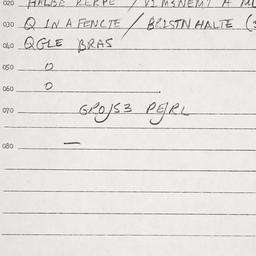 020 HALBE KERPE /
030 Q IN A FENCTE / BRISTN HALTE (
040 QGLE BRAS
050 O
060 O
070 GROJS3 PE/RL
080 —